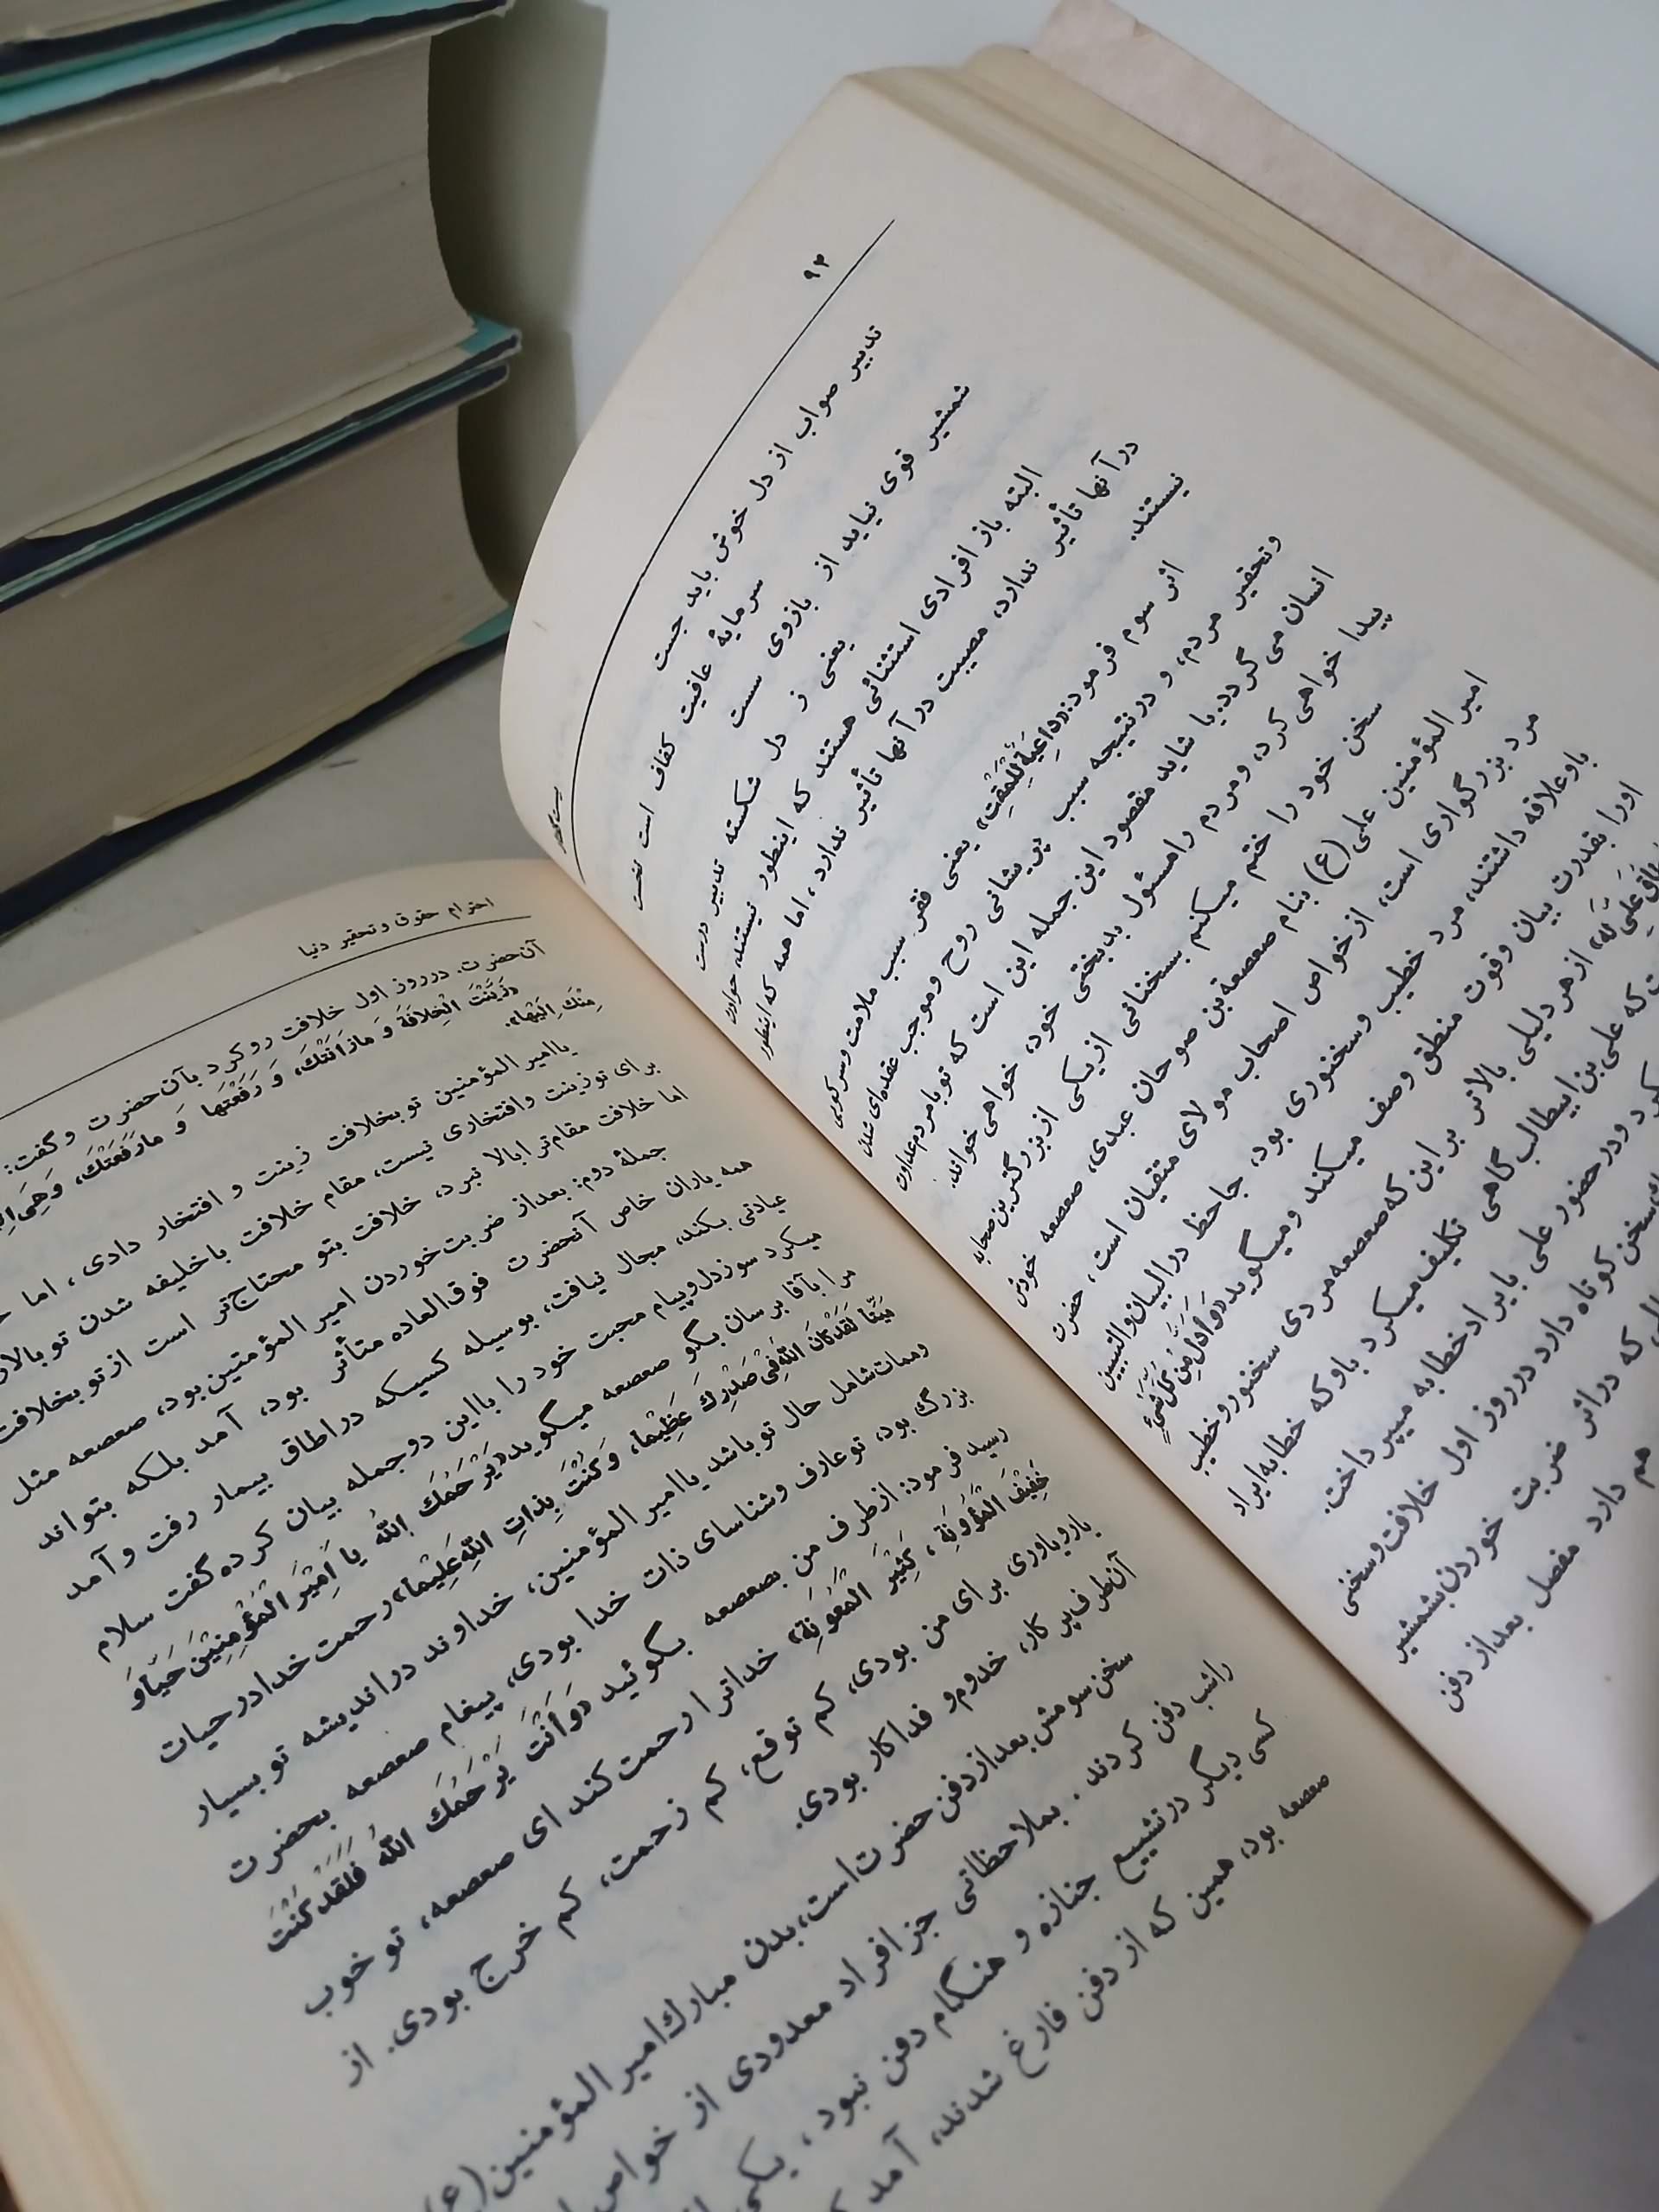 ۹۴
سرمایهٔ عافیت کفاف است نخست
تدبیر صواب از دل خوش باید جست
یعنی ز دل شکسته تدبیر درست
شمشیر قوی نیاید از بازوی سست
البته باز افرادی استثنائی هستند که اینطور نیستند، حوادث
در آنها تأثیر ندارد، مصیبت در آنها تأثیر ندارد، اما همه که اینطور
نیستند.
اثر سوم فرمود: «داعِیَةٌ لِلْمَقْتِ» یعنی فقر سبب ملامت و سرکوبی
و تحقیر مردم، و در نتیجه سبب پریشانی روح و موجب عقده‌ای شدن
انسان می گردد. یا شاید مقصود این جمله این است که تو با مردم عداوت
پیدا خواهی کرد، و مردم را مسئول بدبختی خود، خواهی خواند.
سخن خود را ختم میکنم بسخنانی از یکی از بزرگترین صحابه
امیرالمؤمنین علی (ع) بنام صعصعة بن صوحان عبدی، صعصعه خودش
مرد بزرگواری است، از خواص اصحاب مولای متقیان است، حضرت
باو علاقه داشتند، مرد خطیب و سخنوری بود، جاحظ در البیان والتبیین
اورا بقدرت بیان وقوت منطق وصف میکند و میگوید «وَ اَدَلُّ مِنْ کُلِّ شَیْءٍ
از هر دلیلی بالاتر بر این که صعصعه مردی سخنور و خطیب
که علی بن ابیطالب گاهی تکلیف میکرد باو که خطابه ایراد
کرد و در حضور علی با ایراد خطابه میپرداخت.
سخن کوتاه دارد در روز اول خلافت و سخنی
که در اثر ضربت خوردن بشمشیر
هم دارد مفصل بعد از دفن
احترام حقوق و تحقیر دنیا
آن حضرت. در روز اول خلافت رو کرد بآن حضرت و گفت:
«زَیَّنْتَ الْخِلافَةَ وَ مازانَتْكَ، وَ رَفَعْتَها وَ مارَفَعَتْكَ، وَهِیَ
مِنْكَ اِلَیْها».
یا امیر المؤمنین تو بخلافت زینت و افتخار دادی، اما
برای تو زینت و افتخاری نیست، مقام خلافت با خلیفه شدن تو بالا
اما خلافت مقام ترا بالا نبرد، خلافت بتو محتاج‌تر است از تو بخلافت
جملهٔ دوم: بعد از ضربت خوردن امیر المؤمنین بود، صعصعه مثل
همه یاران خاص آنحضرت فوق العاده متأثر بود، آمد بلکه بتواند
عیادتی بکند، مجال نیافت، بوسیله کسیکه در اطاق بیمار رفت و آمد
میکرد سوز دل و پیام محبت خود را با این دو جمله بیان کرده گفت سلام
مرا بآقا برسان بگو صعصعه میگوید «یَرْحَمُكَ اللّٰهُ یا اَمِیْرَ الْمُؤْمِنِیْنَ حَیّاً وَ
مَیِّتاً لَقَدْ کانَ اللّٰهُ فِیْ صَدْرِكَ عَظِیْماً، وَ کُنْتَ بِذاتِ اللّٰهِ عَلِیْماً» رحمت خدا در حیات
و ممات شامل حال تو باشد یا امیر المؤمنین، خداوند در اندیشه تو بسیار
بزرگ بود، تو عارف و شناسای ذات خدا بودی، پیغام صعصعه بحضرت
رسید فرمود: از طرف من بصعصعه بگوئید «وَ اَنْتَ یَرْحَمُكَ اللّٰهُ فَلَقَدْ کُنْتَ
خَفِیْفَ الْمَؤُوْنَةِ، کَثِیْرَ الْمَعُوْنَةِ» خدا ترا رحمت کند ای صعصعه، تو خوب
یار و یاوری برای من بودی، کم توقع، کم زحمت، کم خرج بودی. از
آن طرف پر کار، خدوم و فدا کار بودی.
سخن سومش بعد از دفن حضرت است، بدن مبارك امیر المؤمنین (ع)
راشب دفن کردند. بملاحظاتی جز افراد معدودی از خواص
کسی دیگر در تشییع جنازه و هنگام دفن نبود، یکی
صعصعه بود، همین که از دفن فارغ شدند، آمد